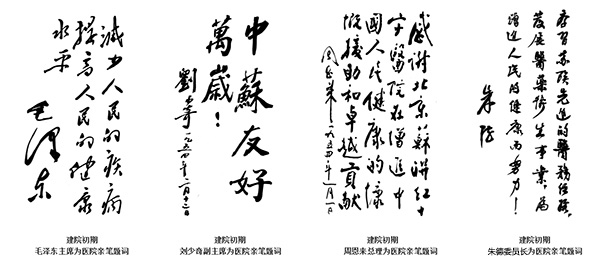 減少人民的疾病
提高人民的健康
水平
毛泽东
建院初期
毛泽东主席为医院亲笔题词
中蘇友好
萬歲！
劉少奇 一九五四年
建院初期
刘少奇副主席为医院亲笔题词
感谢北京蘇联红十
字醫院在增进中
國人民健康的慷
慨援助和卓越貢献
周恩来 一九五四年
建院初期
周恩来总理为医院亲笔题词
學習苏联先進的醫務经验,
发展醫藥衛生事業,為
增進人民的健康而努力！
朱德
建院初期
朱德委员长为医院亲笔题词